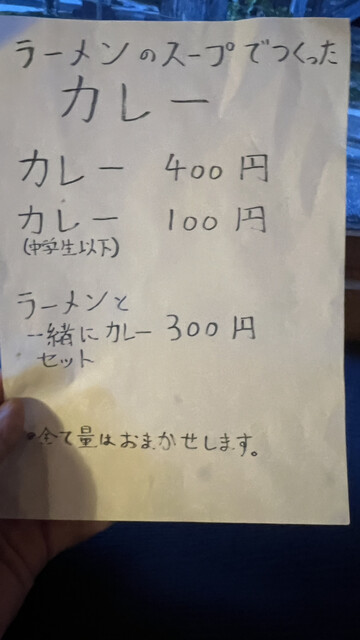 ラーメンのスープでつくった
カレー
カレー 400円
カレー 100円
(中学生以下)
ラーメンと
一緒にカレー 300円
セット
•全て量はおまかせします。